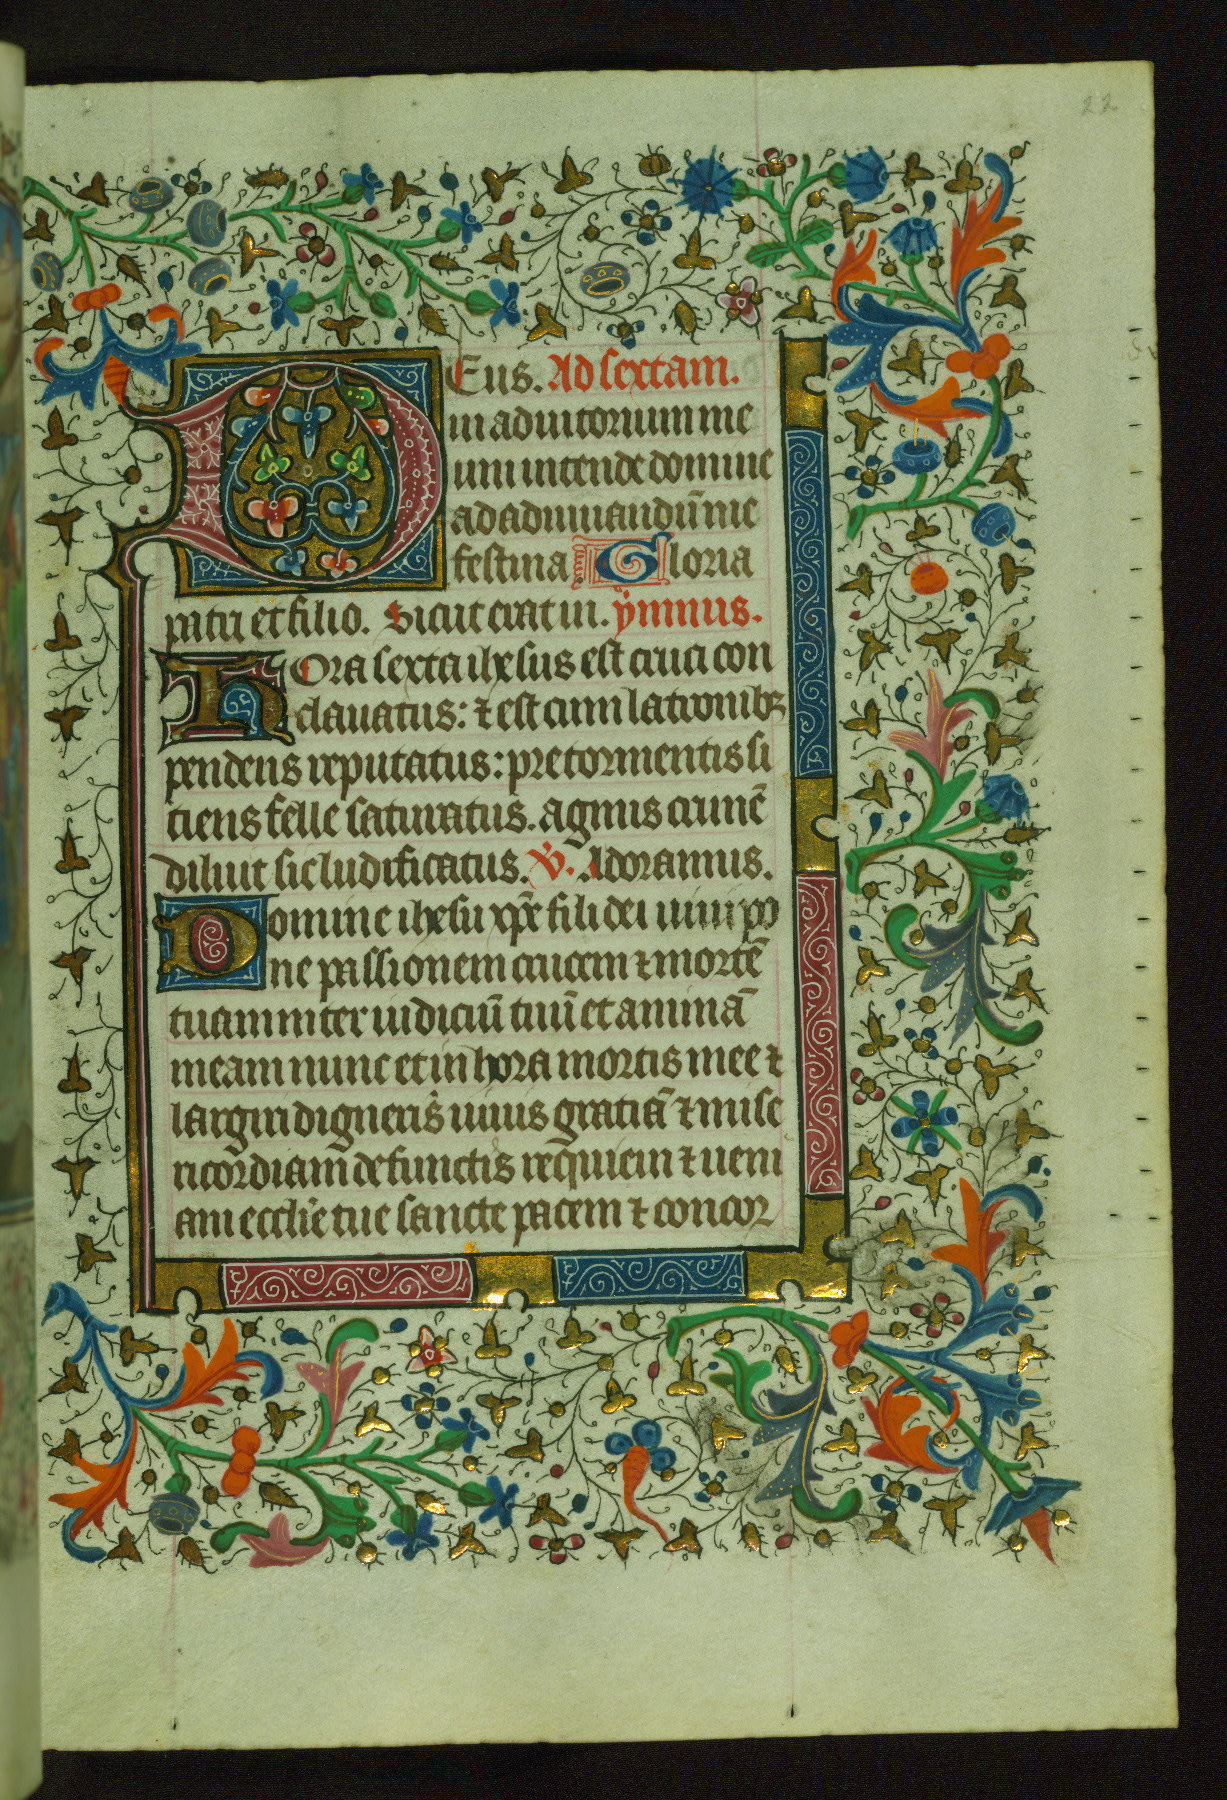 22
DEus. Ad sextam.
in adiutorium me
um intende domine
ad adiuuandū me
festina Gloria
patri et filio. Sicut erat in. ymnus.
HOra sexta ihesus est cruci con
clauatus: ⁊ est cum latronibꝫ
pendens reputatus: pre tormentis si
tiens felle saturatus. agnus crimē
diluit sic ludificatus. V̇. Adoramus.
Domine ihesu xp̄e fili dei uiui po
ne passionem crucem ⁊ mortē
tuam inter iudiciū tuū et animā
meam nunc et in hora mortis mee ⁊
largiri digneris uiuis gratiā ⁊ mise
ricordiam defunctis requiem ⁊ ueni
am ecclīe tue sancte pacem ⁊ concor